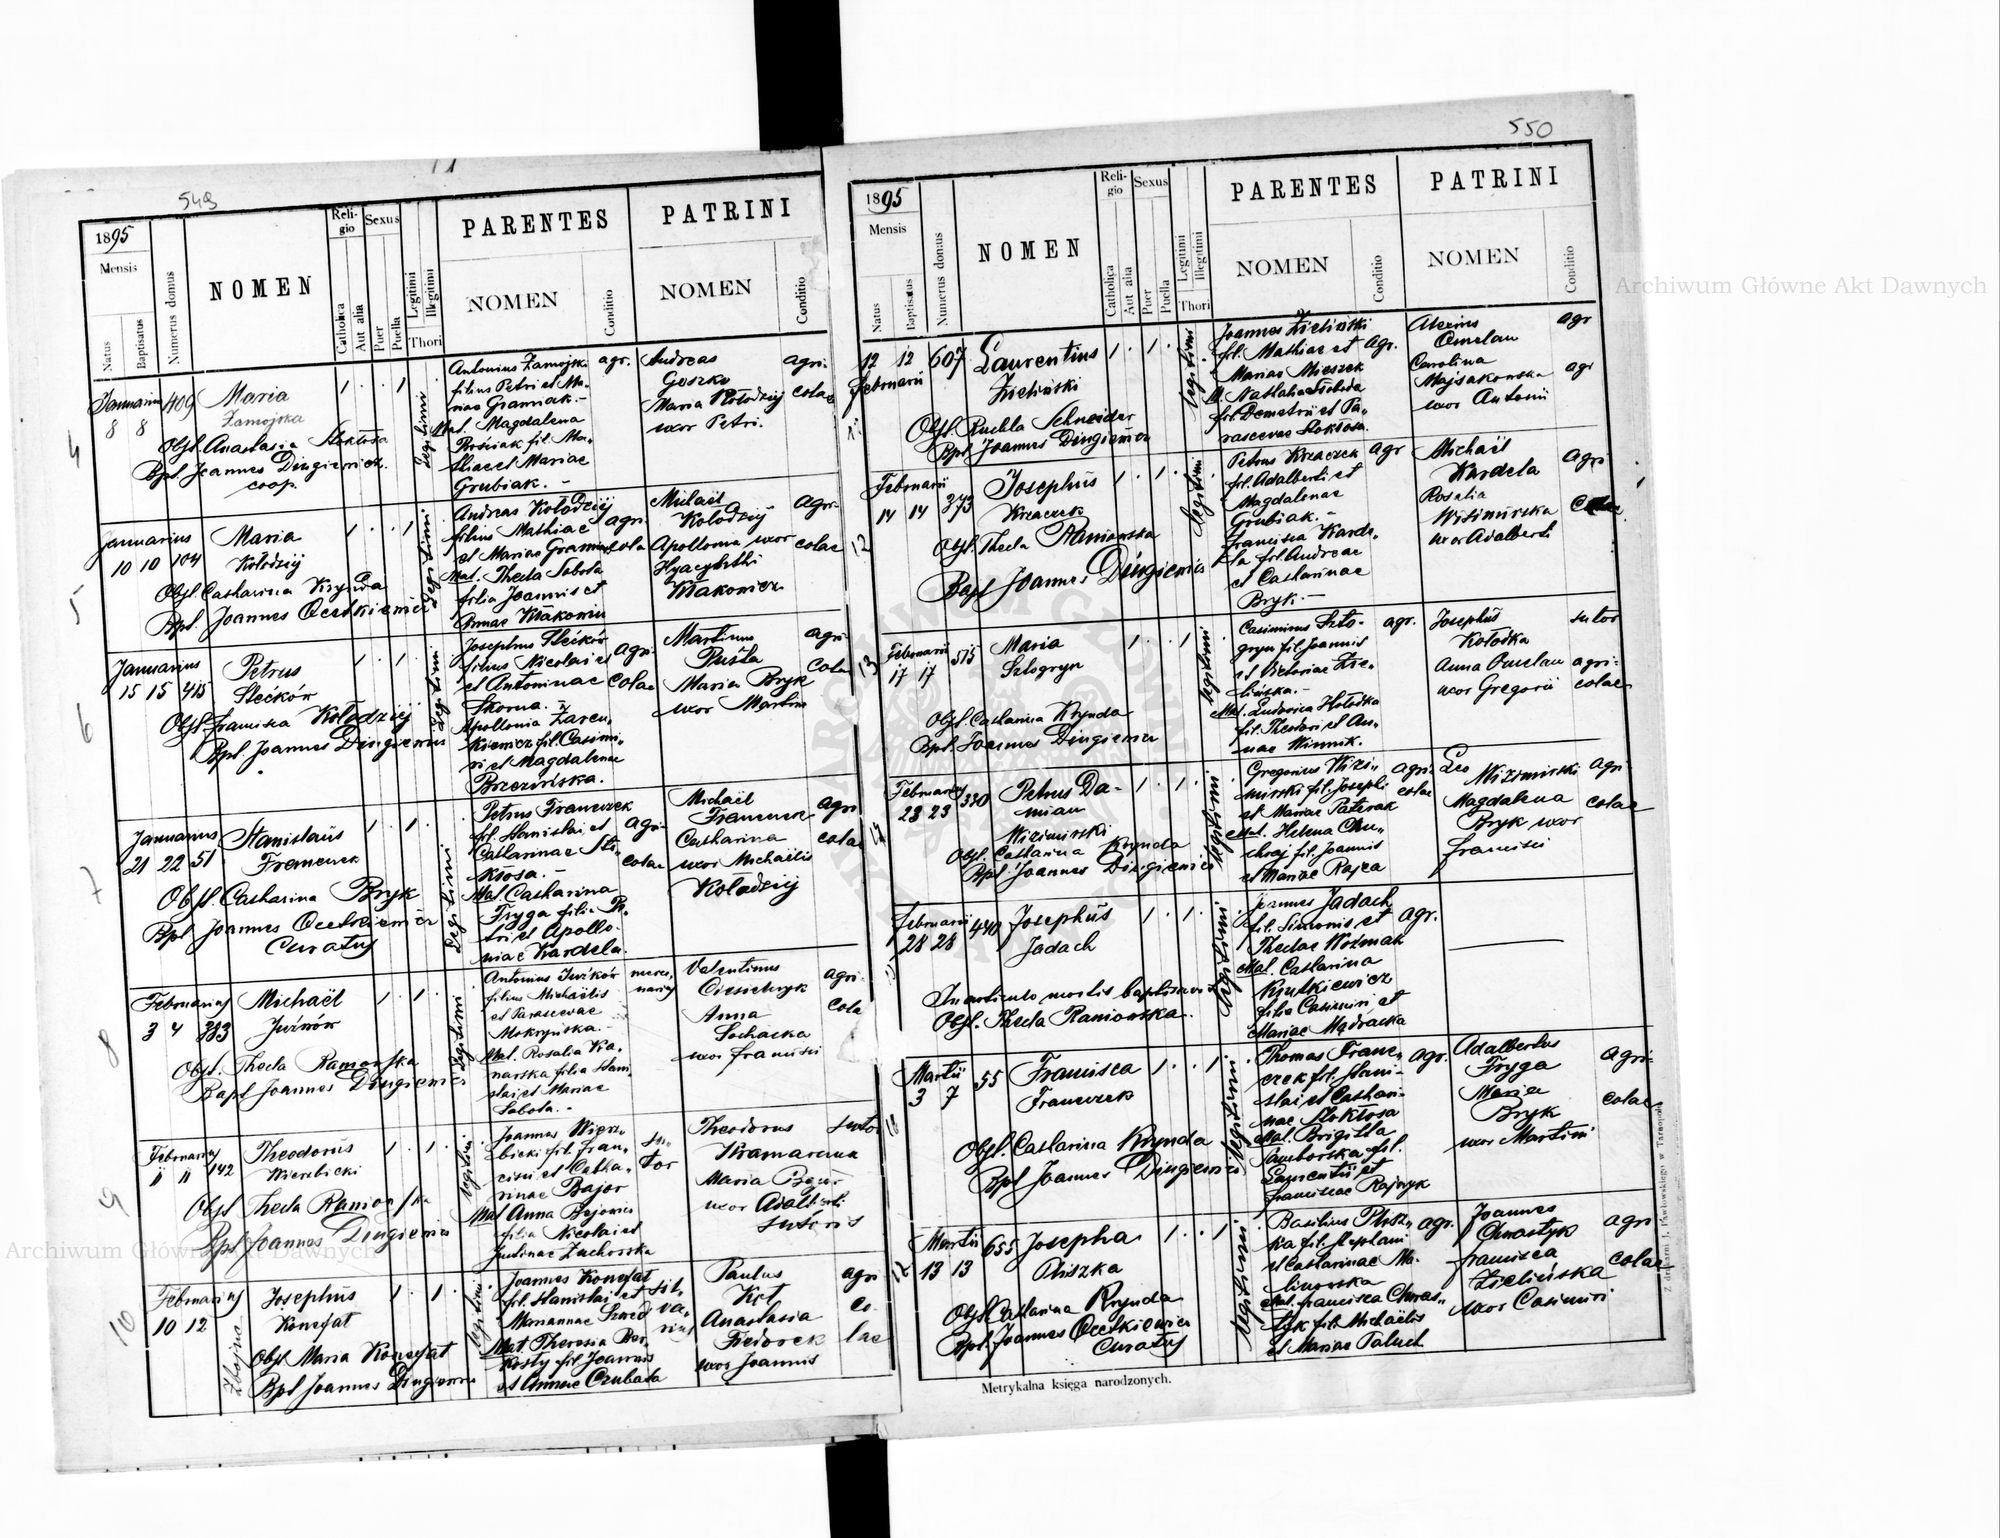 549
1895
Mensis
Natus
Baptisatus
Numerus domus
NOMEN
Religio
Catholica
Aut alia
Sexus
Puer
Puella
Legitimi
Illegitimi
Thori
PARENTES
NOMEN
Conditio
PATRINI
NOMEN
Conditio
4
Januarius
8 8 409
Maria
Zamojska
1 1
Legitimi
Obst. Anastasia Stoktosa
Bpt. Joannes Dingiewicz
coop.
Antonius Zamojski
filius Petri et Ma-
riae Graniak.-
Mat. Magdalena
Prościak fil. Ma-
thiae et Mariae
Grubiak.-
agr.
Andreas
Goszko
Maria Kołodzij
uxor Petri.
agri-
colae
5
Januarius
10 10 104
Maria
Kołodzij
1 1
Legitimi
Obst. Catharina Krynda
Bpt. Joannes Ocetkiewicz
Andreas Kołodzij
filius Mathiae
et Mariae
Mat. Thecla Sobota
filia Joannis et
Annae Kłakowicz
agri-
cola
Michaël
Kołodzij
Apollonia uxor
Hyacynthi
Kłakowicz
agri-
colae
6
Januarius
15 15 415
Petrus
Stećków
1 1
Legitimi
Obst. Francisca Kołodziej
Bpt. Joannes Dingiewicz
Josephus Stećków
filius Nicolai et
et Antoninae
Skorna.-
Apollonia Zaren-
kiewicz fil. Casimi-
ri et Magdalenae
Brzezińska.
agri-
colae
Martinus
Puśla
Maria Bryk
uxor Martini
agri-
colae
7
Januarius
21 22 51
Stanislaus
Franczek
1 1
Legitimi
Obst. Catharina Bryk
Bpt Joannes Ocetkiewicz
Curatus
Petrus Franczek
fil. Stanislai et
Catharinae Sto-
ktosa.-
Mat. Catharina
Fryga filia Pe-
tri et Apollo-
niae Kardela.
agri-
colae
Michaël
Franczek
Catharina
uxor Michaëlis
Kołodzij
agri
colae
8
Februarius
3 4 383
Michaël
Juźków
1 1
Legitimi
Obst. Thecla Ramowska
Bapt Joannes Dingiewicz
Antonius Juźków
filius Michaëlis
et Parascevae
Mokryńska.-
Mat. Rosalia Ka-
narska filia Stani-
slai et Mariae
Sobota.-
merce-
narius
Valentinus
Anna
Sochacka
uxor Francisci
agri-
cola
9
Februarius
11 11 142
Theodorus
Wierzbicki
1 1
Legitimi
Obst Thecla Ramowska
Bpt Joannes Dingiewicz
Joannes Wierz-
bicki fil. Fran-
cisci et Catha-
rinae Bajor
Mat Anna Bojowicz
filia Nicolai et
Justinae Zachorska
su-
tor
Theodorus
Kramarczuk
Maria
uxor Adalberti
sutoris
sutor
10
Februarius
10 12
Zbojna
Josephus
Konefat
1 1
Legitimi
Obst Maria Konefat
Bpt Joannes Dingiewicz
Joannes Konefat
fil. Stanislai et
Mariannae Szwed
Mat. Theresia Bor-
kosty fil. Joannis
et Annae Czubata
sil-
va-
rius
Paulus
Kot
Anastasia
Fiedorek
uxor Joannis
agri
co-
lae
550
1895
Mensis
Natus
Baptisatus
Numerus domus
NOMEN
Religio
Catholica
Aut alia
Sexus
Puer
Puella
Legitimi
Illegitimi
Thori
PARENTES
NOMEN
Conditio
PATRINI
NOMEN
Conditio
12 12 607
Februarii
Laurentius
Zieliński
1 1
Legitimi
Obst. Ruchla Schneider
Bpt. Joannes Dingiewicz
Joannes Zieliński
fil. Mathiae et
Mariae Mieszek
M. Nathalia Słoboda
fil. Demetrii et Pa-
rascevae Stoktosa.
agr.
Alexius
Omelan
Carolina
Majsakowska
uxor Antonii
agr
agr
12
Februarii
14 14 373
Josephus
Krzaczek
1 1
Legitimi
Obst. Thecla Ramowska
Bapt Joannes Dingiewicz
Petrus Krzaczek
fil. Adalberti et
Magdalenae
Grubiak.-
Francisca Karde-
la fil. Andreae
et Catharinae
Bryk.-
agr
Michaël
Kardela
Rosalia
Wizimirska
uxor Adalberti
agri
colae
13
Februarii
17 17 575
Maria
Sztogryn
1 1
Legitimi
Obst. Catharina Krynda
Bpt. Joannes Dingiewicz
Casimirus Szto-
gryn fil. Joannis
et Victoriae Zie-
lińska.-
Mat. Ludovica Hołotka
fil. Theodori et An-
nae Winnik.
agr.
Josephus
Kołodka
Anna Omelan
uxor Gregorii
sutor
agri-
colae
Februarius
23 23 380
Petrus Da-
mian
Wizimirski
1 1
Legitimi
Obst. Catharina Krynda
Bpt. Joannes Dingiewicz
Gregorius Wizi-
mirski fil. Josephi
et Mariae Paterak
Mat. Helena Chu-
chraj fil. Joannis
et Mariae Rajca
agri-
colae
Leo
Wizimirski
Magdalena
Bryk uxor
Francisci
agri-
colae
Februarii
28 28 440
Josephus
Jadach
1 1
Legitimi
In articulo mortis baptisavit
Obst. Thecla Ramowska.
Joannes Jadach
fil. Simonis et
Theclae Woźniak
Mat. Catharina
Krutkiewicz
filia Casimiri et
Mariae Mądracka
agr.
Martii
3 7 55
Francisca
Franczek
1 1
Legitimi
Obst. Catharina Krynda
Bpt Joannes Dingiewicz
Thomas Fran-
czek fil. Stani-
slai et Cathari-
nae Stoktosa
Mat. Brigitta
Samborska fil.
Laurentii et
Franciscae Rajczyk
agr.
Adalbertus
Fryga
Maria
Bryk
uxor Martini
agri-
colae
Martii
13 13 655
Josepha
Pliszka
1 1
Legitimi
Obst. Catharina Krynda
Bpt. Joannes Ocetkiewicz
Curatus
Basilius Plisz-
ka fil. Stephani
et Catharinae Ma-
linowska
Mat. Francisca Chwas-
tyk fil. Michaëlis
et Mariae Paluch
agr.
Joannes
Chwastyk
Francisca
Zielińska
uxor Casimiri
agri
colae
Metrykalna księga narodzonych.
Z drukarni J. Pawłowskiego w Tarnopolu
Archiwum Główne Akt Dawnych
Archiwum Główne Akt Dawnych